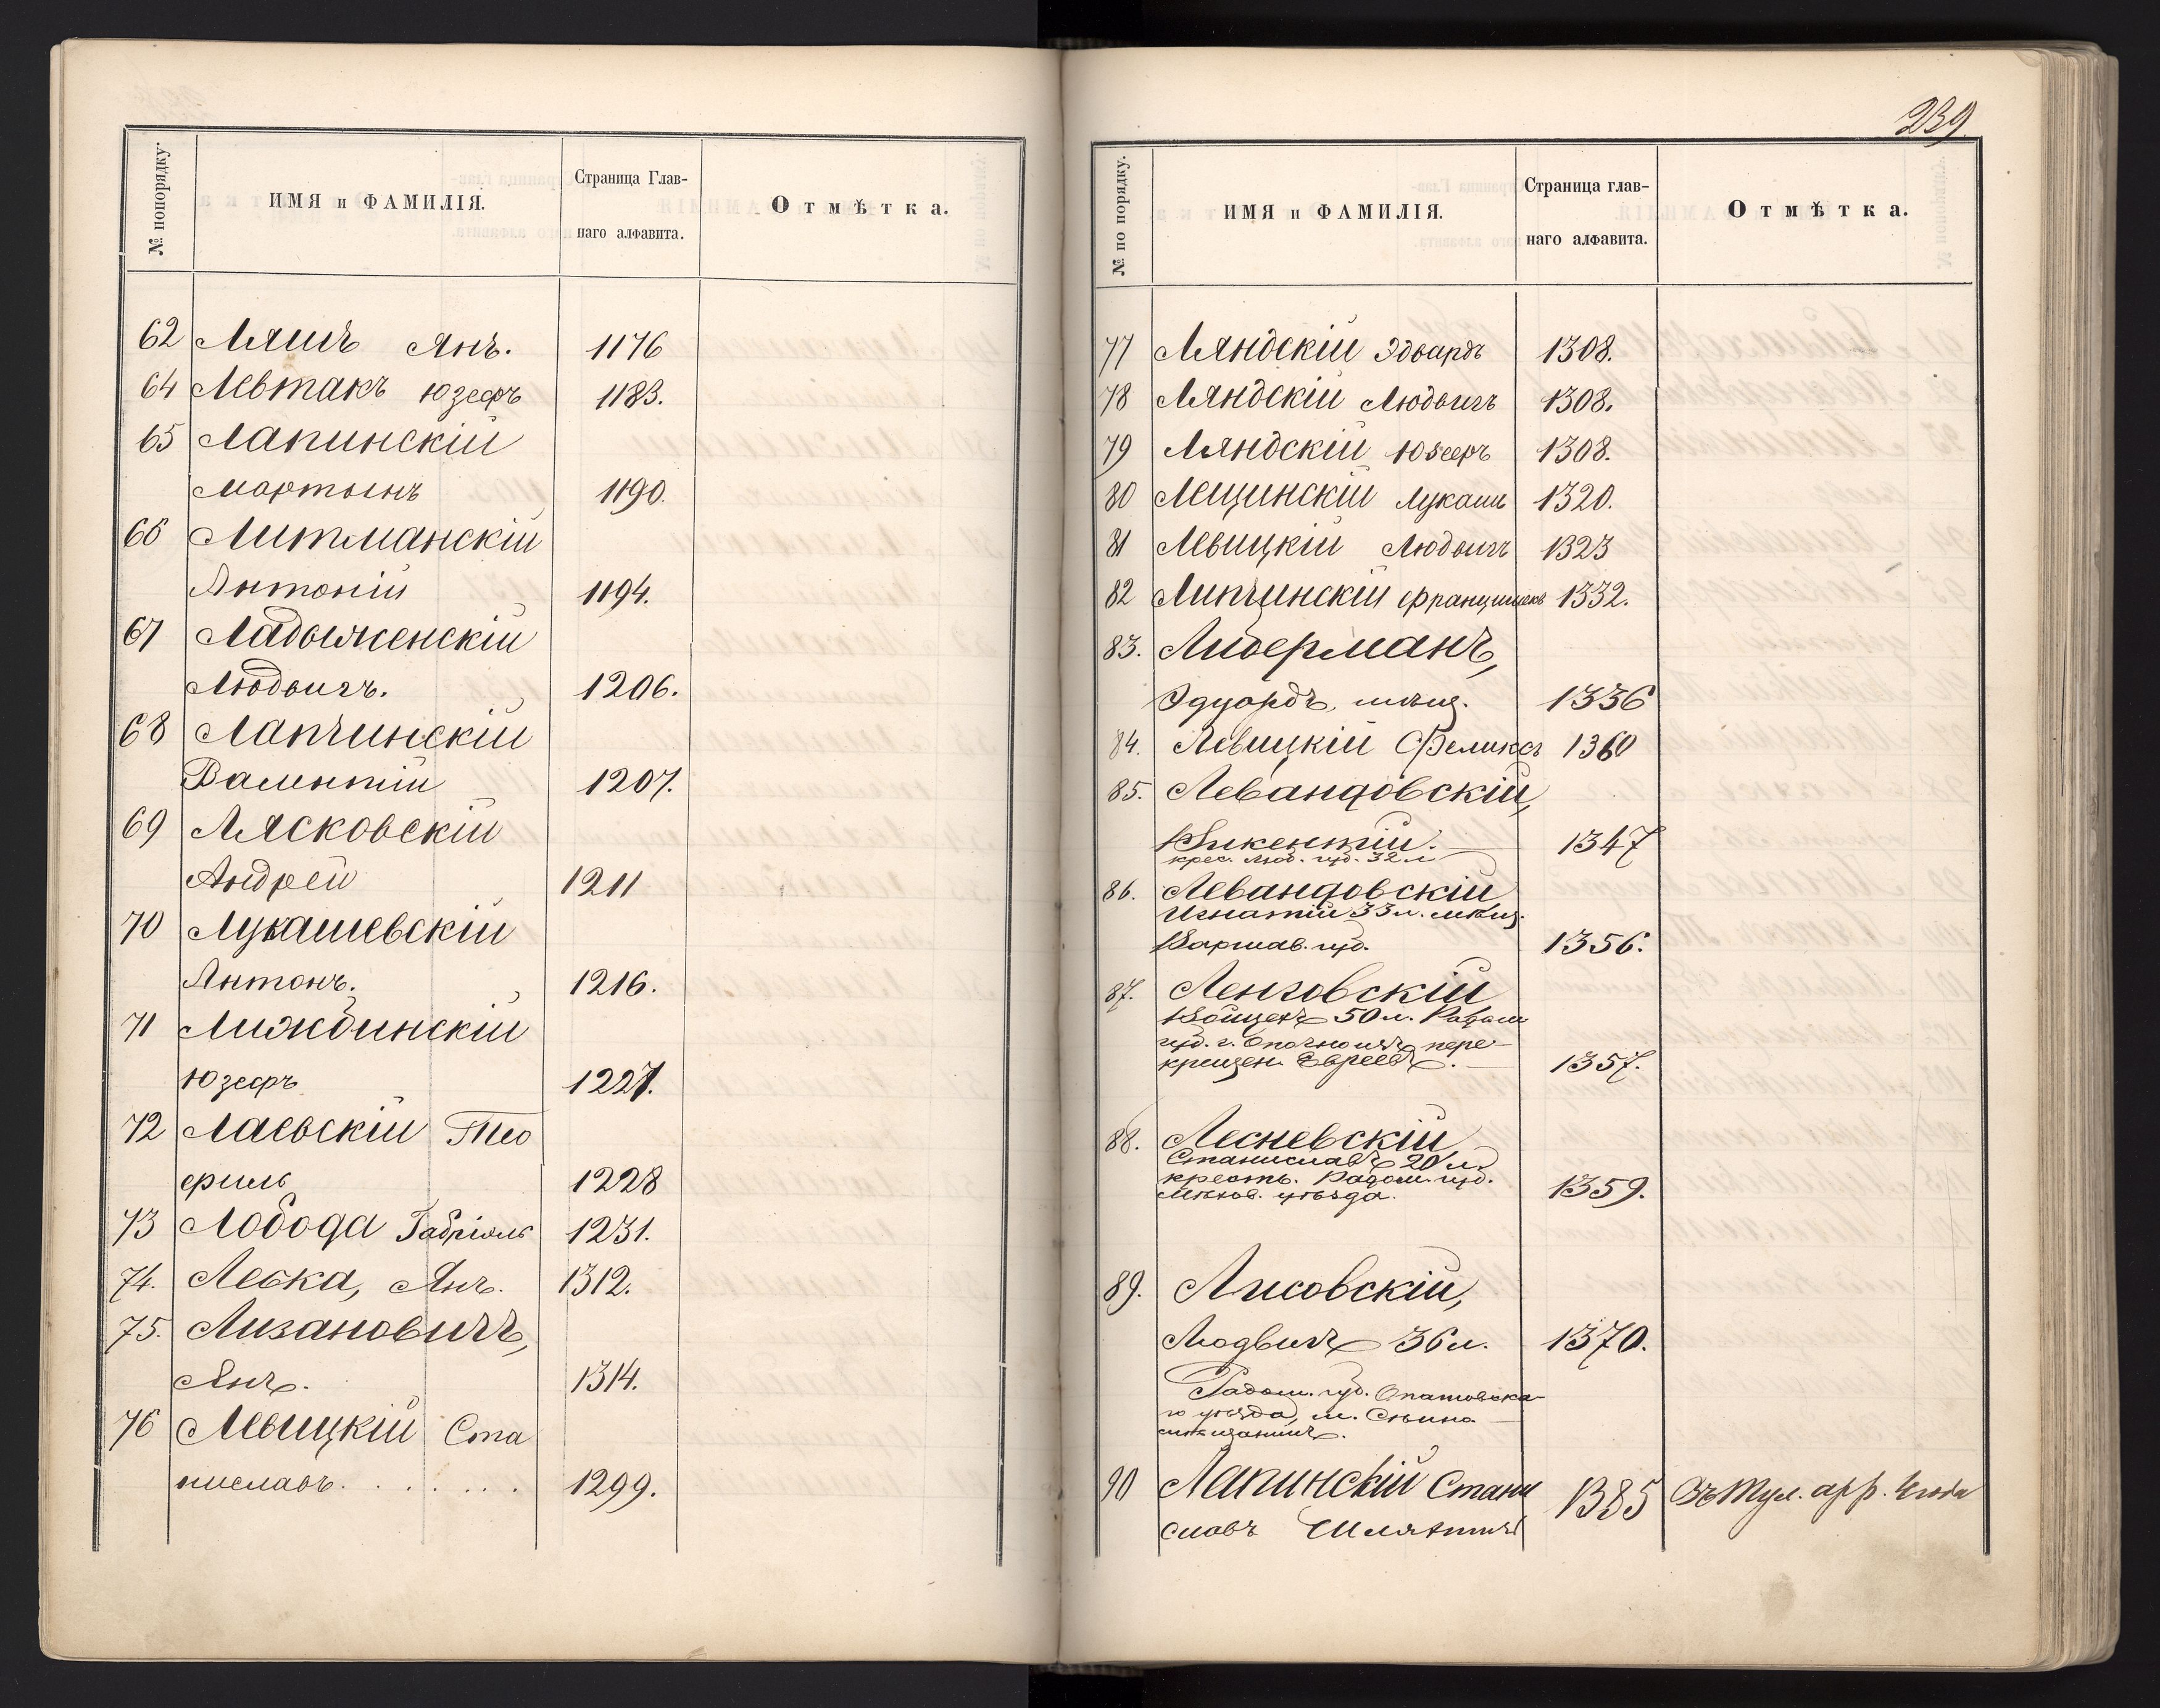 № попорядку.
ИМЯ и ФАМИЛІЯ.
Страница Глав-
наго алфавита.
Отмѣтка.
62 Ляшъ Янъ. 1176
64 Левтакъ Юзефъ 1183.
65 Лапинскій
Мартынъ 1190.
66 Литманскій
Антоній 1194.
67 Ладыженскій
Людвигъ. 1206.
68 Лапчинскій
Валентій 1207.
69 Лясковскій
Андрей 1211
70 Лукашевскій
Антонъ. 1216.
71 Лиждинскій
Юзефъ 1227.
72 Лаевскій Тео
филь 1228
73 Лобода Габріэль 1231.
74. Леска, Янъ. 1312.
75. Лизановичъ,
Янъ. 1314.
76 Левицкій Ста
ниславъ....... 1299.
239
№ по порядку.
ИМЯ и ФАМИЛІЯ.
Страница глав-
наго алфавита.
Отмѣтка.
77 Ляндскій Эдвардъ 1308.
78 Ляндскій Людвигъ 1308.
79 Ляндскій Юзефъ 1308.
80 Лещинскій Лукашъ 1320.
81 Левицкій Людвигъ 1323
82 Липчинскій Францишекъ 1332.
83. Лидерманъ,
Эдуардъ, мѣщ. 1336
84. Левицкій Феликсъ 1360
85. Левандовскій,
Викентій. 1347
крес. Люб. губ. 32 л
86. Левандовскій
Игнатій 33 л. мѣщ.
Варшав. губ. 1356.
87. Ленговскій
Войцехъ 50 л. Радом
губ. г. Опочно изъ пере-
крещен. Евреевъ. 1357.
88. Лесневскій
Станиславъ 20 л.
крестъ. Радом. губ.
Мѣхов. уѣзда. 1359.
89. Лисовскій,
Людвигъ 36 л. 1370.
Радом. губ. Опатовска-
го уѣзда, м.
мѣщанинъ.
90 Лапинскій Стани
славъ Шляхтичъ 1385 Въ Тул. арр.